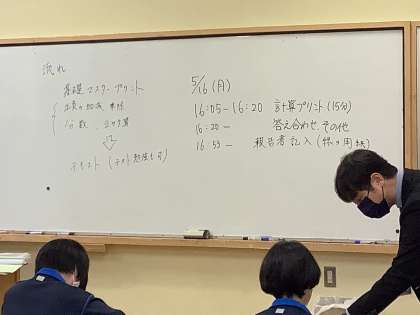 流れ
基礎マスタープリント
正負の加減乗除
分数、
⇩
テキスト(テスト勉強も可)
5/16(月)
16:05-16:20 計算プリント(15分)
16:20- 答え合わせ、その他
16:55- 報告書記入